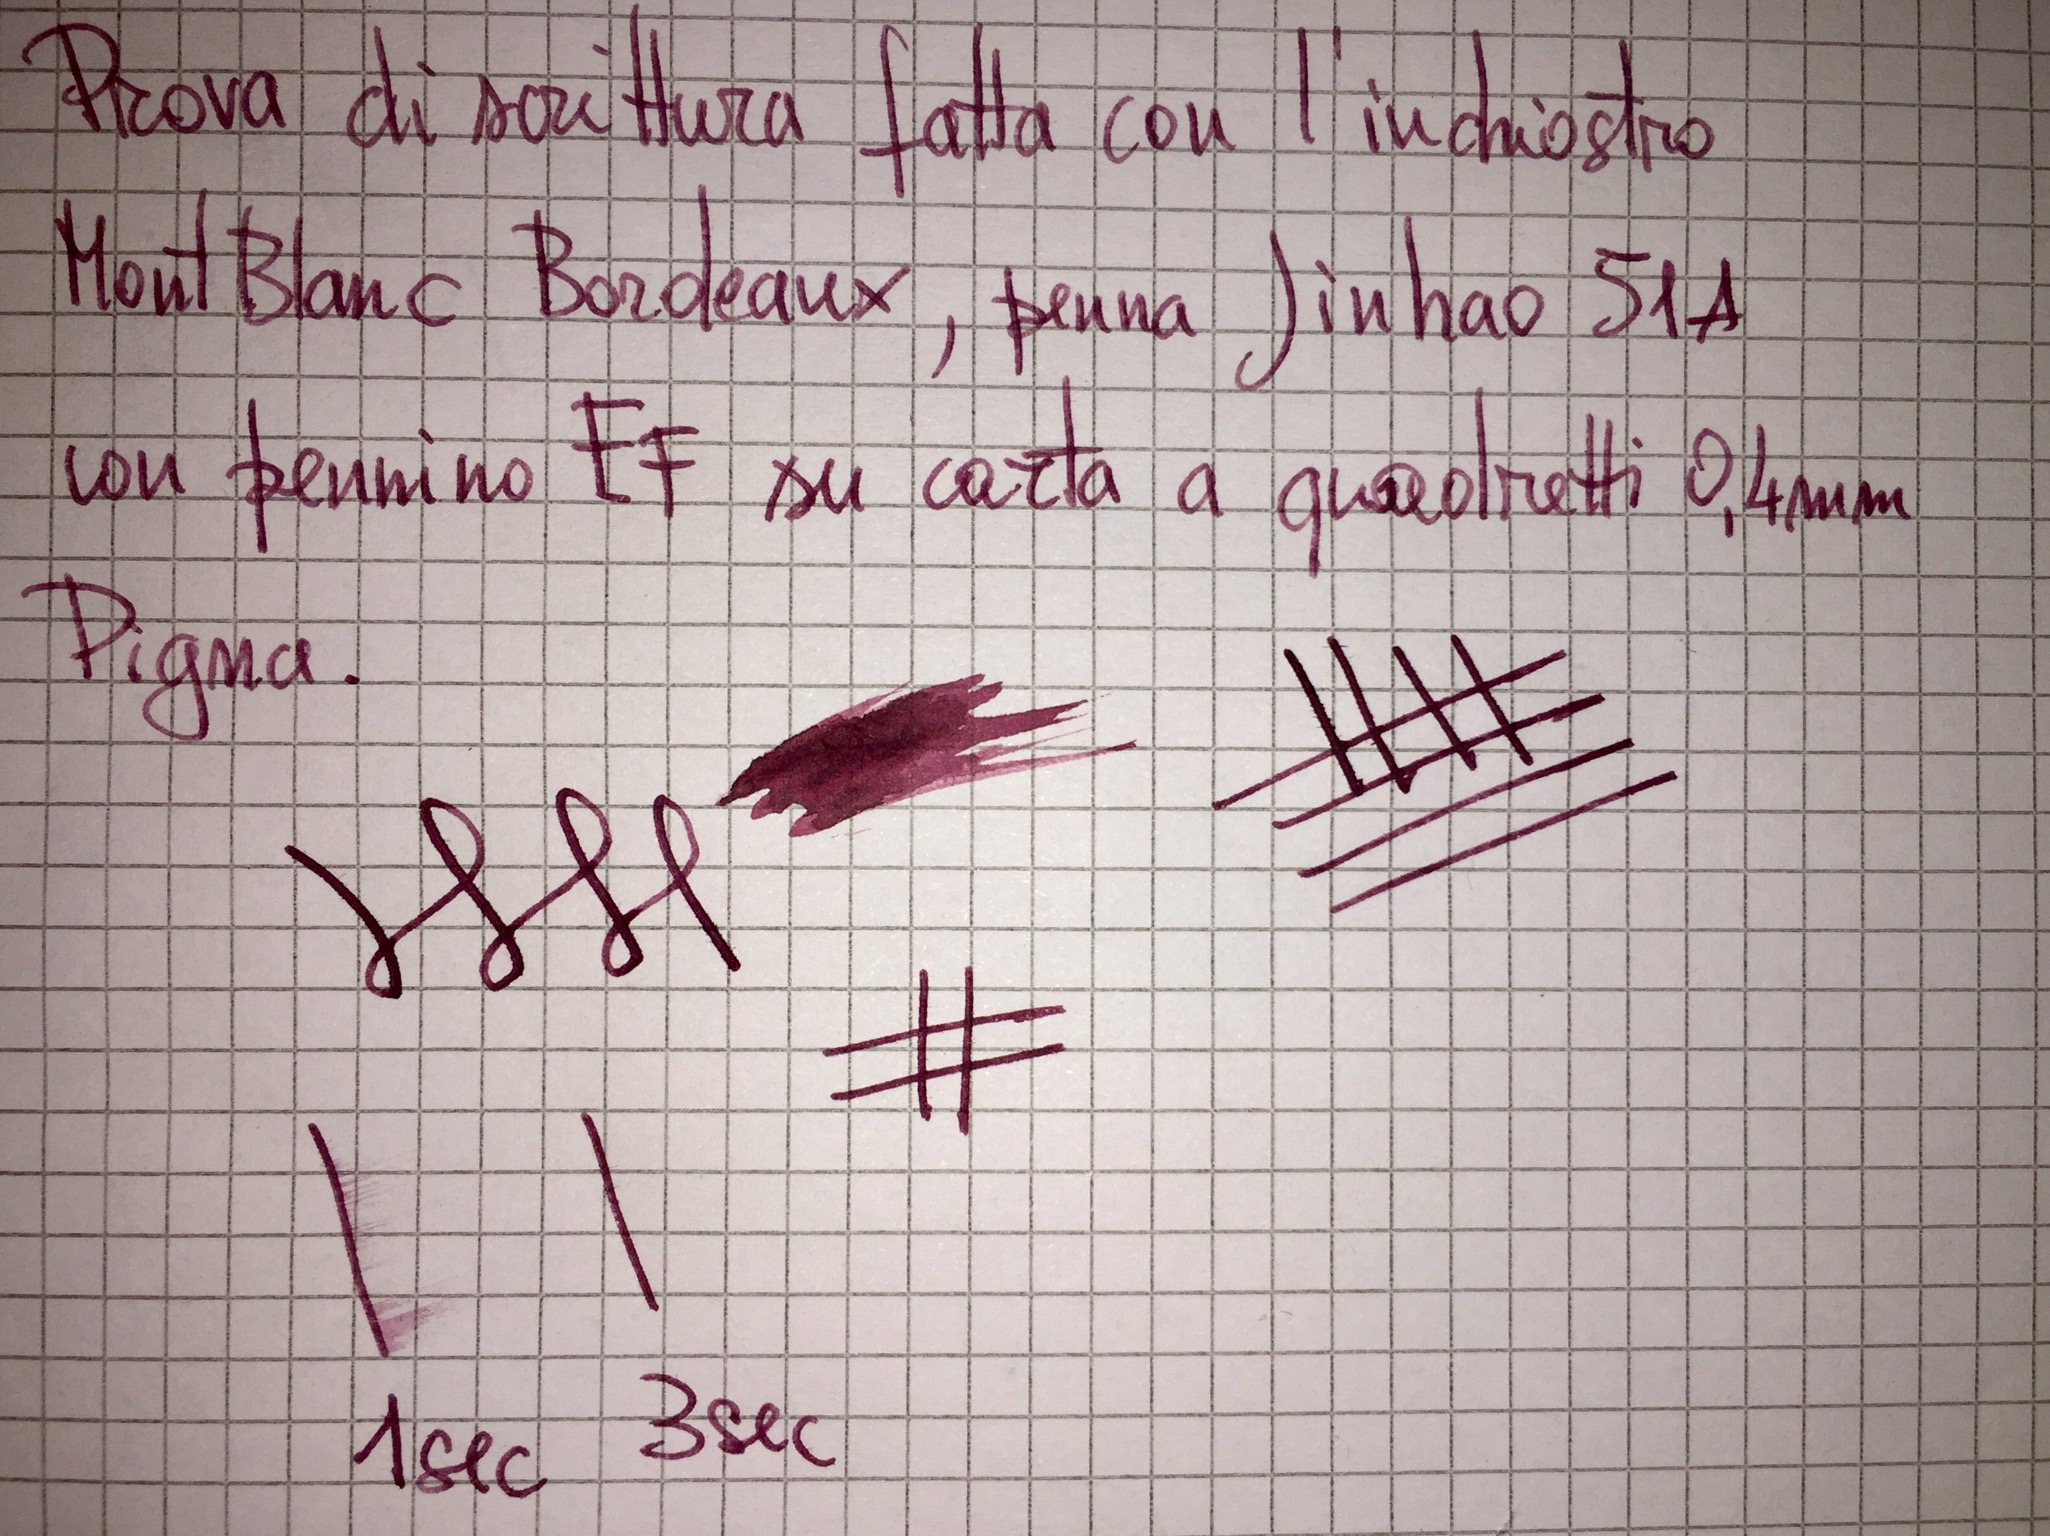 Prova di scrittura fatta con l'inchiostro
MontBlanc Bordeaux, penna Jinhao 51A
con pennino EF su carta a quadretti 0,4mm
Pigna.
1sec 3sec